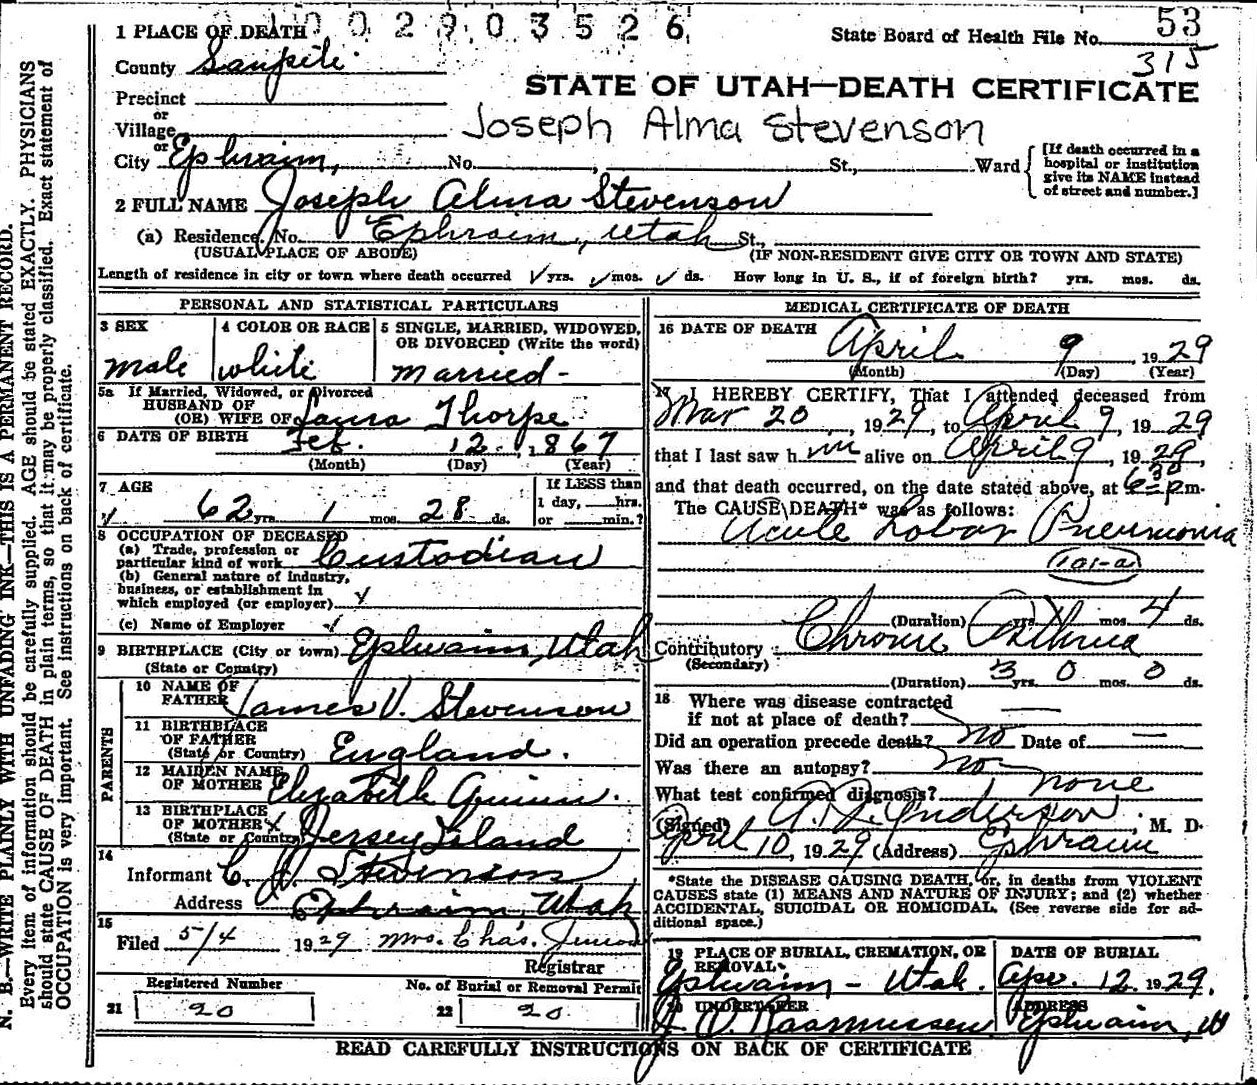 1 0 0 2 9 0 3 5 2 6
1 PLACE OF DEATH
State Board of Health File No. 53
315
County Sanpete
STATE OF UTAH—DEATH CERTIFICATE
Precinct
or
Village
Joseph Alma Stevenson
or
City Ephraim, No. , St., Ward {[If death occurred in a hospital or institution give its NAME instead of street and number.]
2 FULL NAME Joseph Alma Stevenson
(a) Residence. No. Ephraim, Utah St.,
(USUAL PLACE OF ABODE) (IF NON-RESIDENT GIVE CITY OR TOWN AND STATE)
Length of residence in city or town where death occurred yrs. mos. ds. How long in U. S., if of foreign birth? yrs. mos. ds.
PERSONAL AND STATISTICAL PARTICULARS
3 SEX 4 COLOR OR RACE 5 SINGLE, MARRIED, WIDOWED, OR DIVORCED (Write the word)
male white married-
5a If Married, Widowed, or Divorced
HUSBAND OF
(OR) WIFE OF Laura Thorpe
6 DATE OF BIRTH Feb. 12, 1867
(Month) (Day) (Year)
7 AGE If LESS than
62 yrs. 1 mos. 28 ds. 1 day, hrs.
or min.?
8 OCCUPATION OF DECEASED
(a) Trade, profession or
particular kind of work Custodian
(b) General nature of industry,
business, or establishment in
which employed (or employer)
(c) Name of Employer
9 BIRTHPLACE (City or town) Ephraim, Utah
(State or Country)
PARENTS
10 NAME OF
FATHER James V. Stevenson
11 BIRTHPLACE
OF FATHER
(State or Country) England.
12 MAIDEN NAME
OF MOTHER Elizabeth
13 BIRTHPLACE
OF MOTHER
(State or Country) Jersey Island
14
Informant C. Stevenson
Address Ephraim, Utah
15
Filed 5/4 1929 Mrs. Chas.
Registrar
Registered Number No. of Burial or Removal Permit
21 20 22 20
MEDICAL CERTIFICATE OF DEATH
16 DATE OF DEATH April 9, 1929
(Month) (Day) (Year)
17 I HEREBY CERTIFY, That I attended deceased from
Mar 20, 1929, to April 9, 1929
that I last saw him alive on April 9, 1929,
and that death occurred, on the date stated above, at 6 30 p m.
The CAUSE DEATH* was as follows:
Acute Lobar Pneumonia
101-a
(Duration) yrs. mos. 4 ds.
Contributory Chronic Asthma
(Secondary)
(Duration) 3 yrs. 0 mos. 0 ds.
18 Where was disease contracted
if not at place of death?
Did an operation precede death? no Date of —
Was there an autopsy? no
What test confirmed diagnosis? none
(Signed) Anderson, M. D.
April 10, 1929 (Address) Ephraim
*State the DISEASE CAUSING DEATH, or, in deaths from VIOLENT
CAUSES state (1) MEANS AND NATURE OF INJURY; and (2) whether
ACCIDENTAL, SUICIDAL OR HOMICIDAL. (See reverse side for ad-
ditional space.)
19 PLACE OF BURIAL, CREMATION, OR REMOVAL DATE OF BURIAL
Ephraim - Utah. Apr. 12, 1929.
20 UNDERTAKER ADDRESS
Rasmussen Ephraim, U
READ CAREFULLY INSTRUCTIONS ON BACK OF CERTIFICATE
N. B.—WRITE PLAINLY WITH UNFADING INK—THIS IS A PERMANENT RECORD.
Every item of information should be carefully supplied. AGE should be stated EXACTLY. PHYSICIANS
should state CAUSE OF DEATH in plain terms, so that it may be properly classified. Exact statement of
OCCUPATION is very important. See instructions on back of certificate.